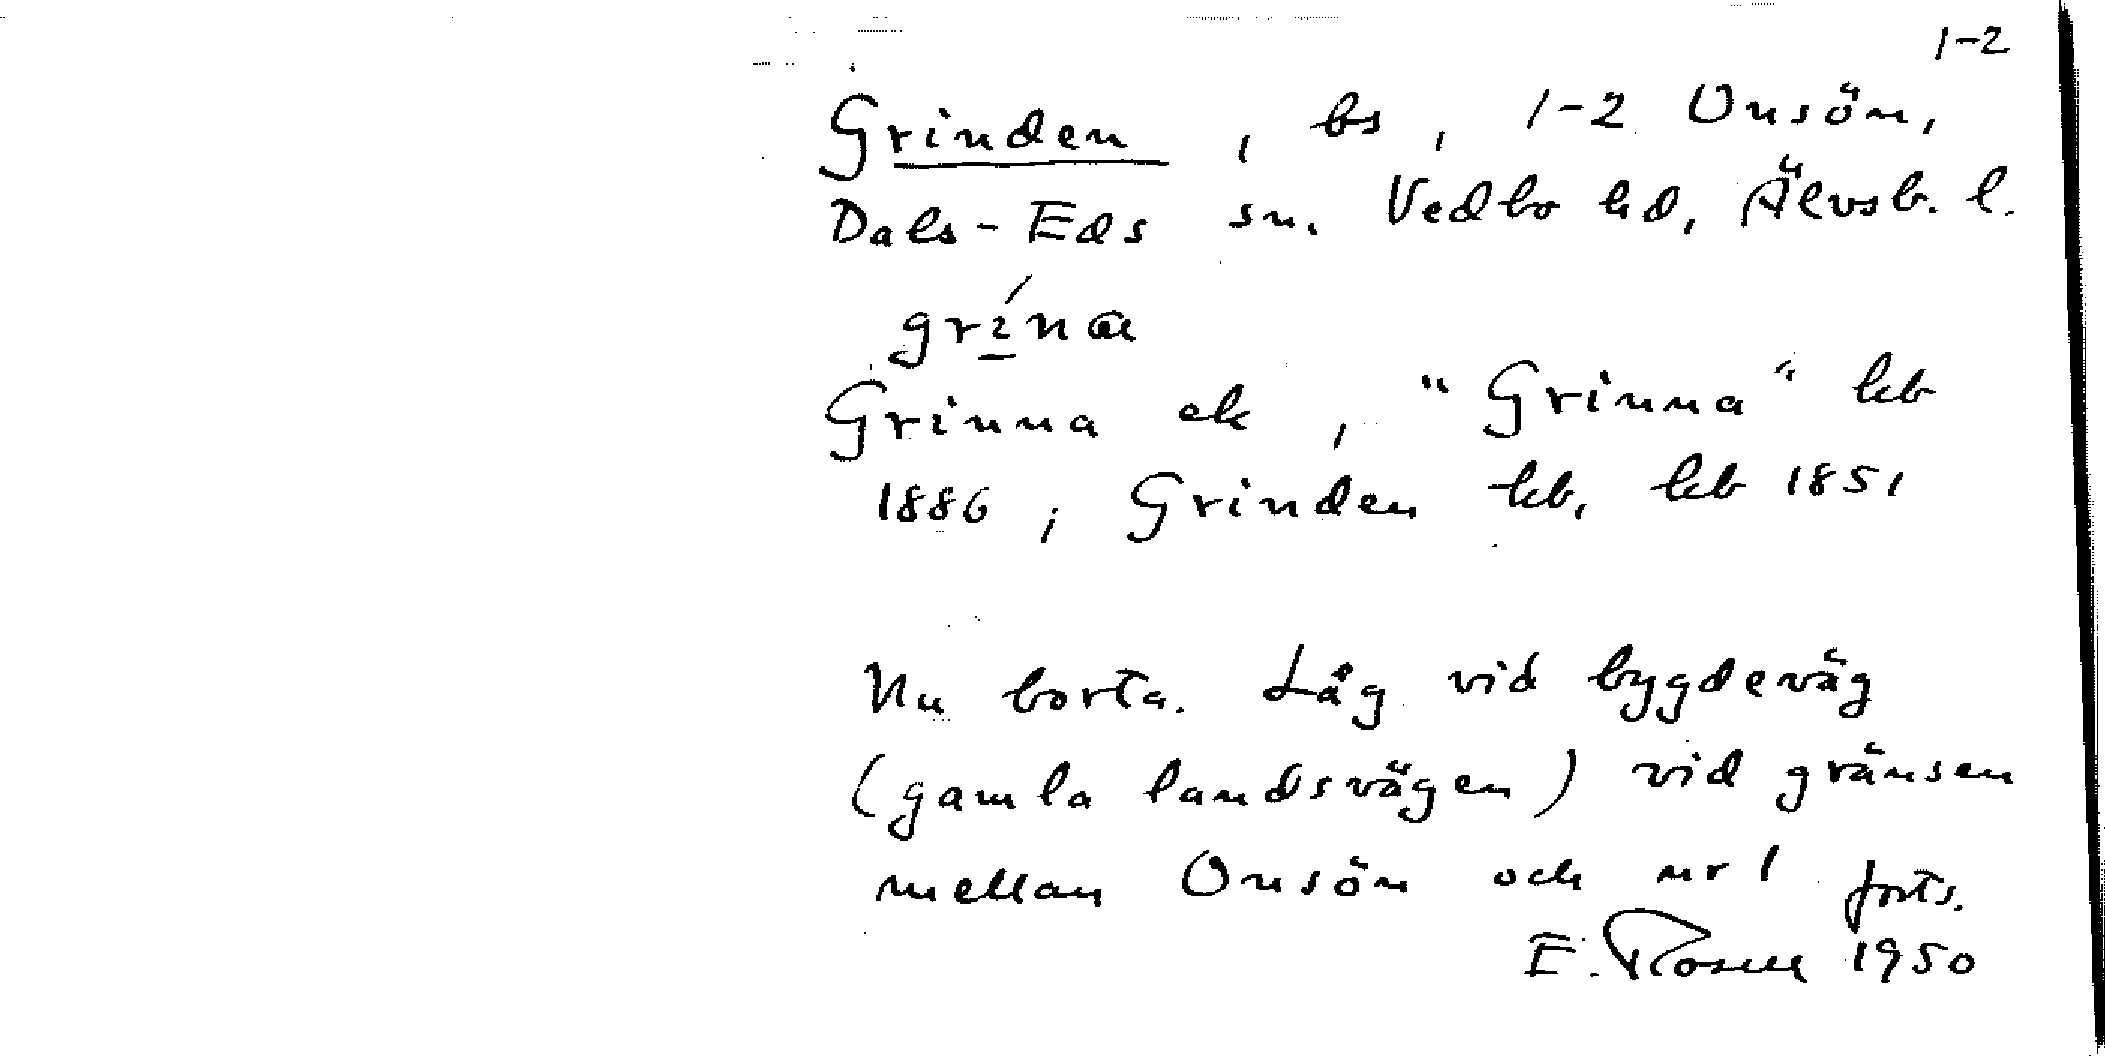 1-2
Grinden, bs, 1-2 Onsön,
Dals-Eds sn. Vedbo hd, Älvsb. l.
grínα
Grinna ek, "Grinna" kb
1886; Grinden kb, kb 1851
Nu borta. Låg vid bygdeväg
(gamla landsvägen) vid gränsen
mellan Onsön och nr 1 forts.
E. Rosell 1950